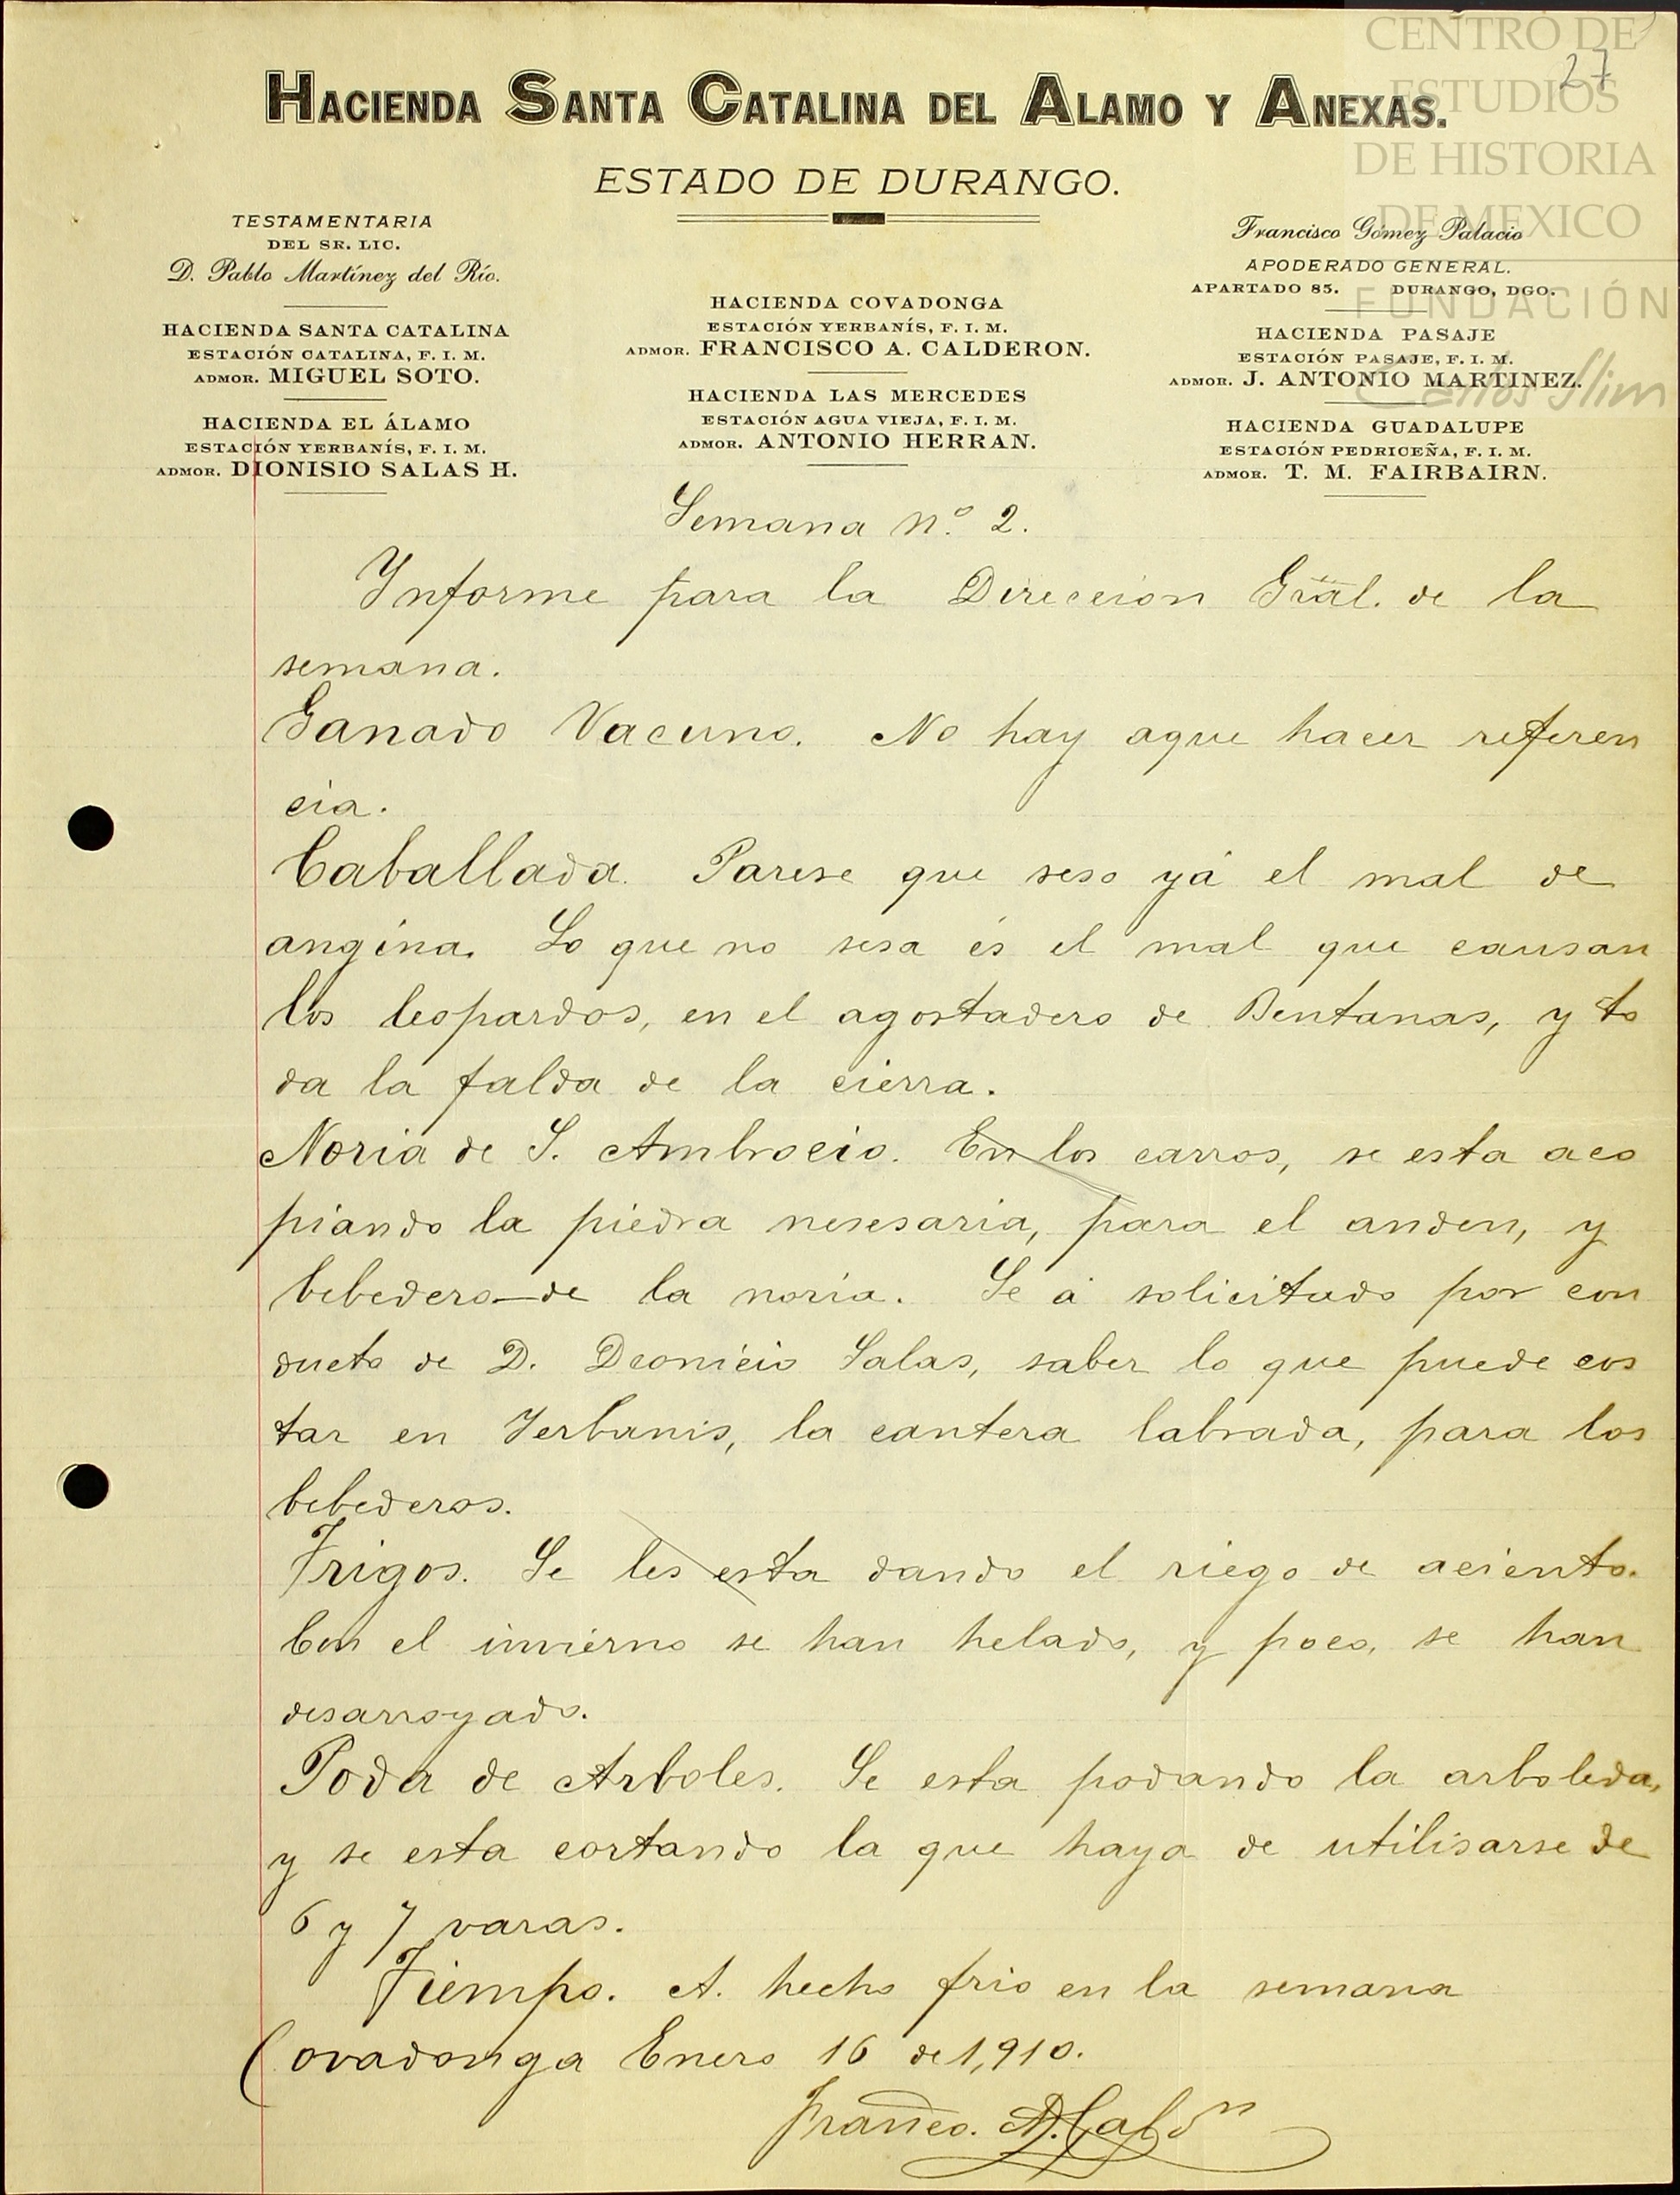 CENTRO DE
ESTUDIOS
DE HISTORIA
DE MEXICO
FUNDACIÓN
Carlos Slim
27
HACIENDA SANTA CATALINA DEL ALAMO Y ANEXAS.
ESTADO DE DURANGO.
TESTAMENTARIA
DEL SR. LIC.
D. Pablo Martínez del Río.
HACIENDA SANTA CATALINA
ESTACIÓN CATALINA, F. I. M.
ADMOR. MIGUEL SOTO.
HACIENDA EL ÁLAMO
ESTACIÓN YERBANÍS, F. I. M.
ADMOR. DIONISIO SALAS H.
HACIENDA COVADONGA
ESTACIÓN YERBANÍS, F. I. M.
ADMOR. FRANCISCO A. CALDERON.
HACIENDA LAS MERCEDES
ESTACIÓN AGUA VIEJA, F. I. M.
ADMOR. ANTONIO HERRAN.
Francisco Gómez Palacio
APODERADO GENERAL.
APARTADO 85. DURANGO, DGO.
HACIENDA PASAJE
ESTACIÓN PASAJE, F. I. M.
ADMOR. J. ANTONIO MARTINEZ.
HACIENDA GUADALUPE
ESTACIÓN PEDRICEÑA, F. I. M.
ADMOR. T. M. FAIRBAIRN.
Semana nº 2.
Ynforme para la Direccion Gral. de la
semana.
Ganado Vacuno. No hay aque hacer referen
cia.
Caballada. Parese que seso yá el mal de
angina. Lo que no sesa és el mal que causan
los leopardos, en el agostadero de Bentanas, y to
da la falda de la cierra.
Noria de S. Ambrocio. En los carros, se esta aco
piando la piedra nesesaria, para el anden, y
bebedero de la noria. Se á solicitado por con
ducto de D. Dionicio Salas, saber lo que puede cos
tar en Yerbanis, la cantera labrada, para los
bebederos.
Trigos. Se les esta dando el riego de aciento.
Con el invierno se han helado, y poco, se han
desarroyado.
Poda de Arboles. Se esta podando la arboleda,
y se esta cortando la que haya de utilisarse de
6 y 7 varas.
Tiempo. A. hecho frio en la semana
Covadonga Enero 16 de 1,910.
Franco. A. Caldn